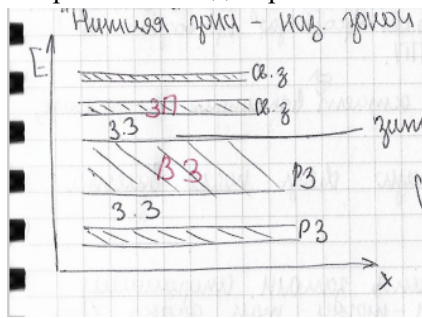 "Нижняя" зона – наз. зоной
E
св. з
ЗП
св. з
З.З
ВЗ
РЗ
З.З
РЗ
x